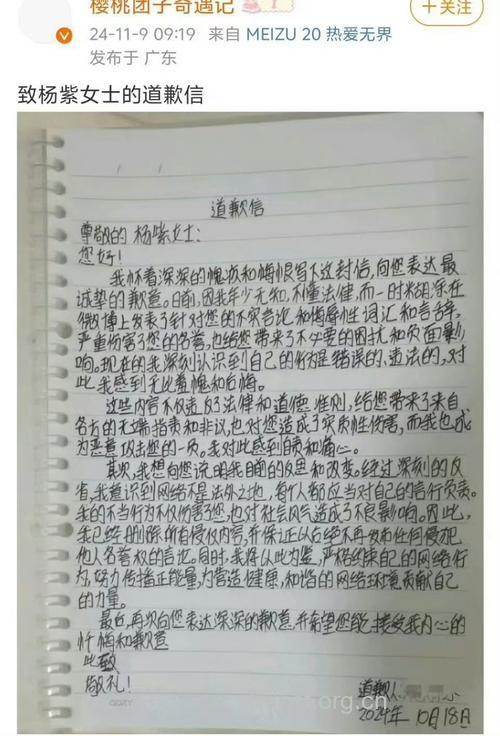 樱桃团子奇遇记
+关注
24-11-9 09:19 来自 MEIZU 20 热爱无界
发布于 广东
致杨紫女士的道歉信
道歉信
尊敬的杨紫女士:
您好!
我怀着深深的愧疚和悔恨写下这封信,向您表达最
诚挚的歉意。日前,因我年少无知,不懂法律,而一时糊涂在
微博上发表了针对您的不实言论和侮辱性词汇和言语等,
严重伤害了您的名誉,也给您带来了不必要的困扰和负面影
响。现在的我深刻认识到自己的行为是错误的、违法的,对
此我感到无比羞愧和后悔。
这些内容不仅违反了法律和道德准则,给您带来了来自
各方的无端指责和非议,也对您造成了实质性伤害,而我也成
为恶意攻击您的一员。我对此感到自责和痛心。
其次,我想向您说明我目前的反思和改变。经过深刻的反
省,我意识到网络不是法外之地,每个人都应当对自己的言行负责。
我的不当行为不仅伤害了您,也对社会风气造成了不良影响。因此,
我已经删除所有侵权内容,并保证从以后绝不再发布任何侵犯
他人名誉权的言论。同时,我将以此为鉴,严格约束自己的网络行
为,努力传播正能量,为营造健康,和谐的网络环境贡献自己
的力量。
最后,再次向您表达深深的歉意,并希望您能接受我内心的
忏悔和歉意
此致
敬礼!
道歉人
2024年10月18日
.org.cn